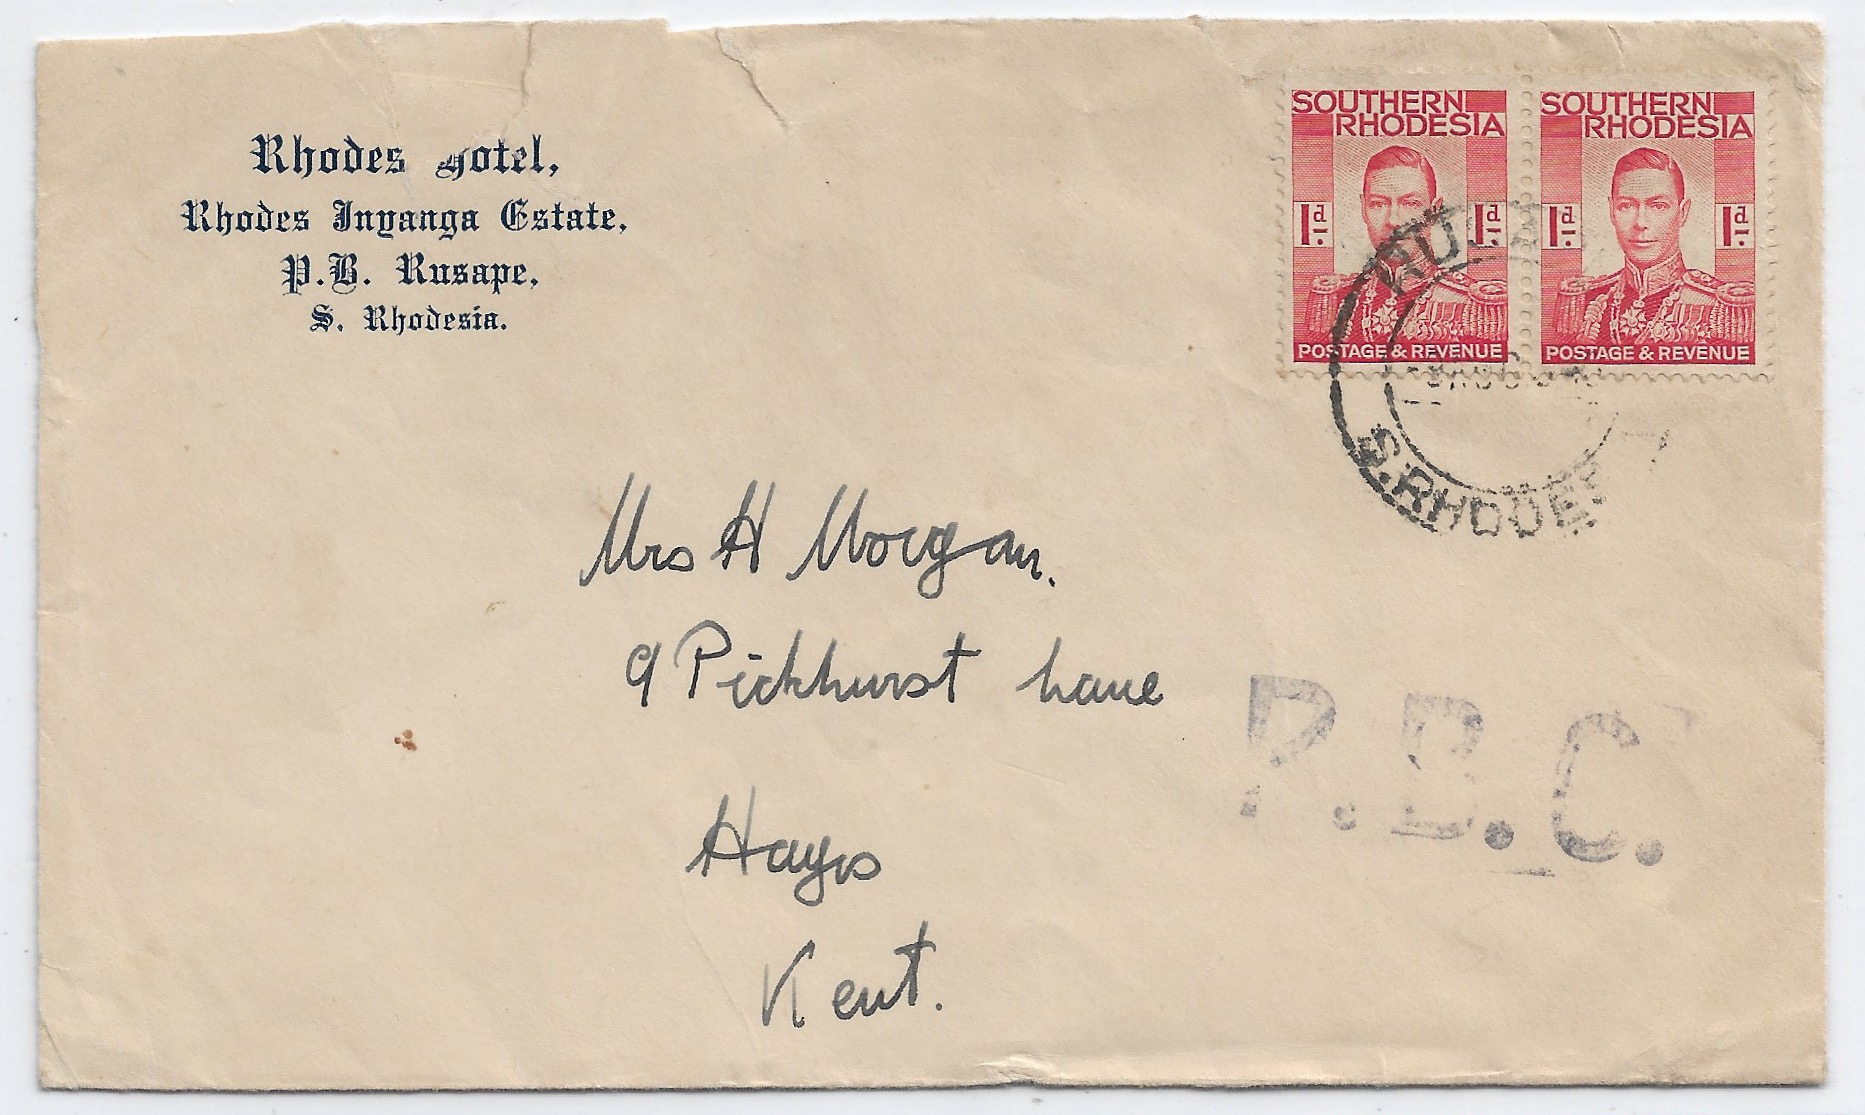 Rhodes Hotel,
Rhodes Inyanga Estate,
P.B. Rusape,
S. Rhodesia.
SOUTHERN
RHODESIA
1d. 1d.
POSTAGE & REVENUE
SOUTHERN
RHODESIA
1d. 1d.
POSTAGE & REVENUE
S. RHODES
Mrs H Morgan.
9 Pickhurst Lane
Hayes
Kent.
P.B.C.